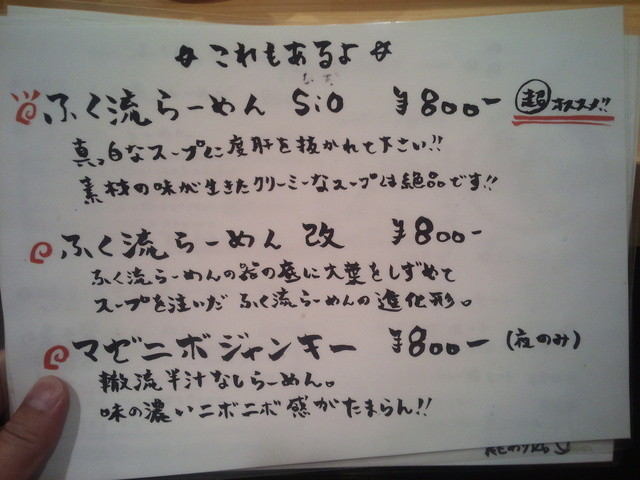 これもあるよ
ふく流らーめん SiO ¥800ー 超オススメ!!
真っ白なスープに度肝を抜かれて下さい!!
素材の味が生きたクリーミーなスープは絶品です!!
ふく流らーめん 改 ¥800ー
ふく流らーめんの器の底に大葉をしずめて
スープを注いだ ふく流らーめんの進化形。
マゼニボジャンキー ¥800ー (夜のみ)
轍流半汁なしらーめん。
味の濃いニボニボ感がたまらん!!